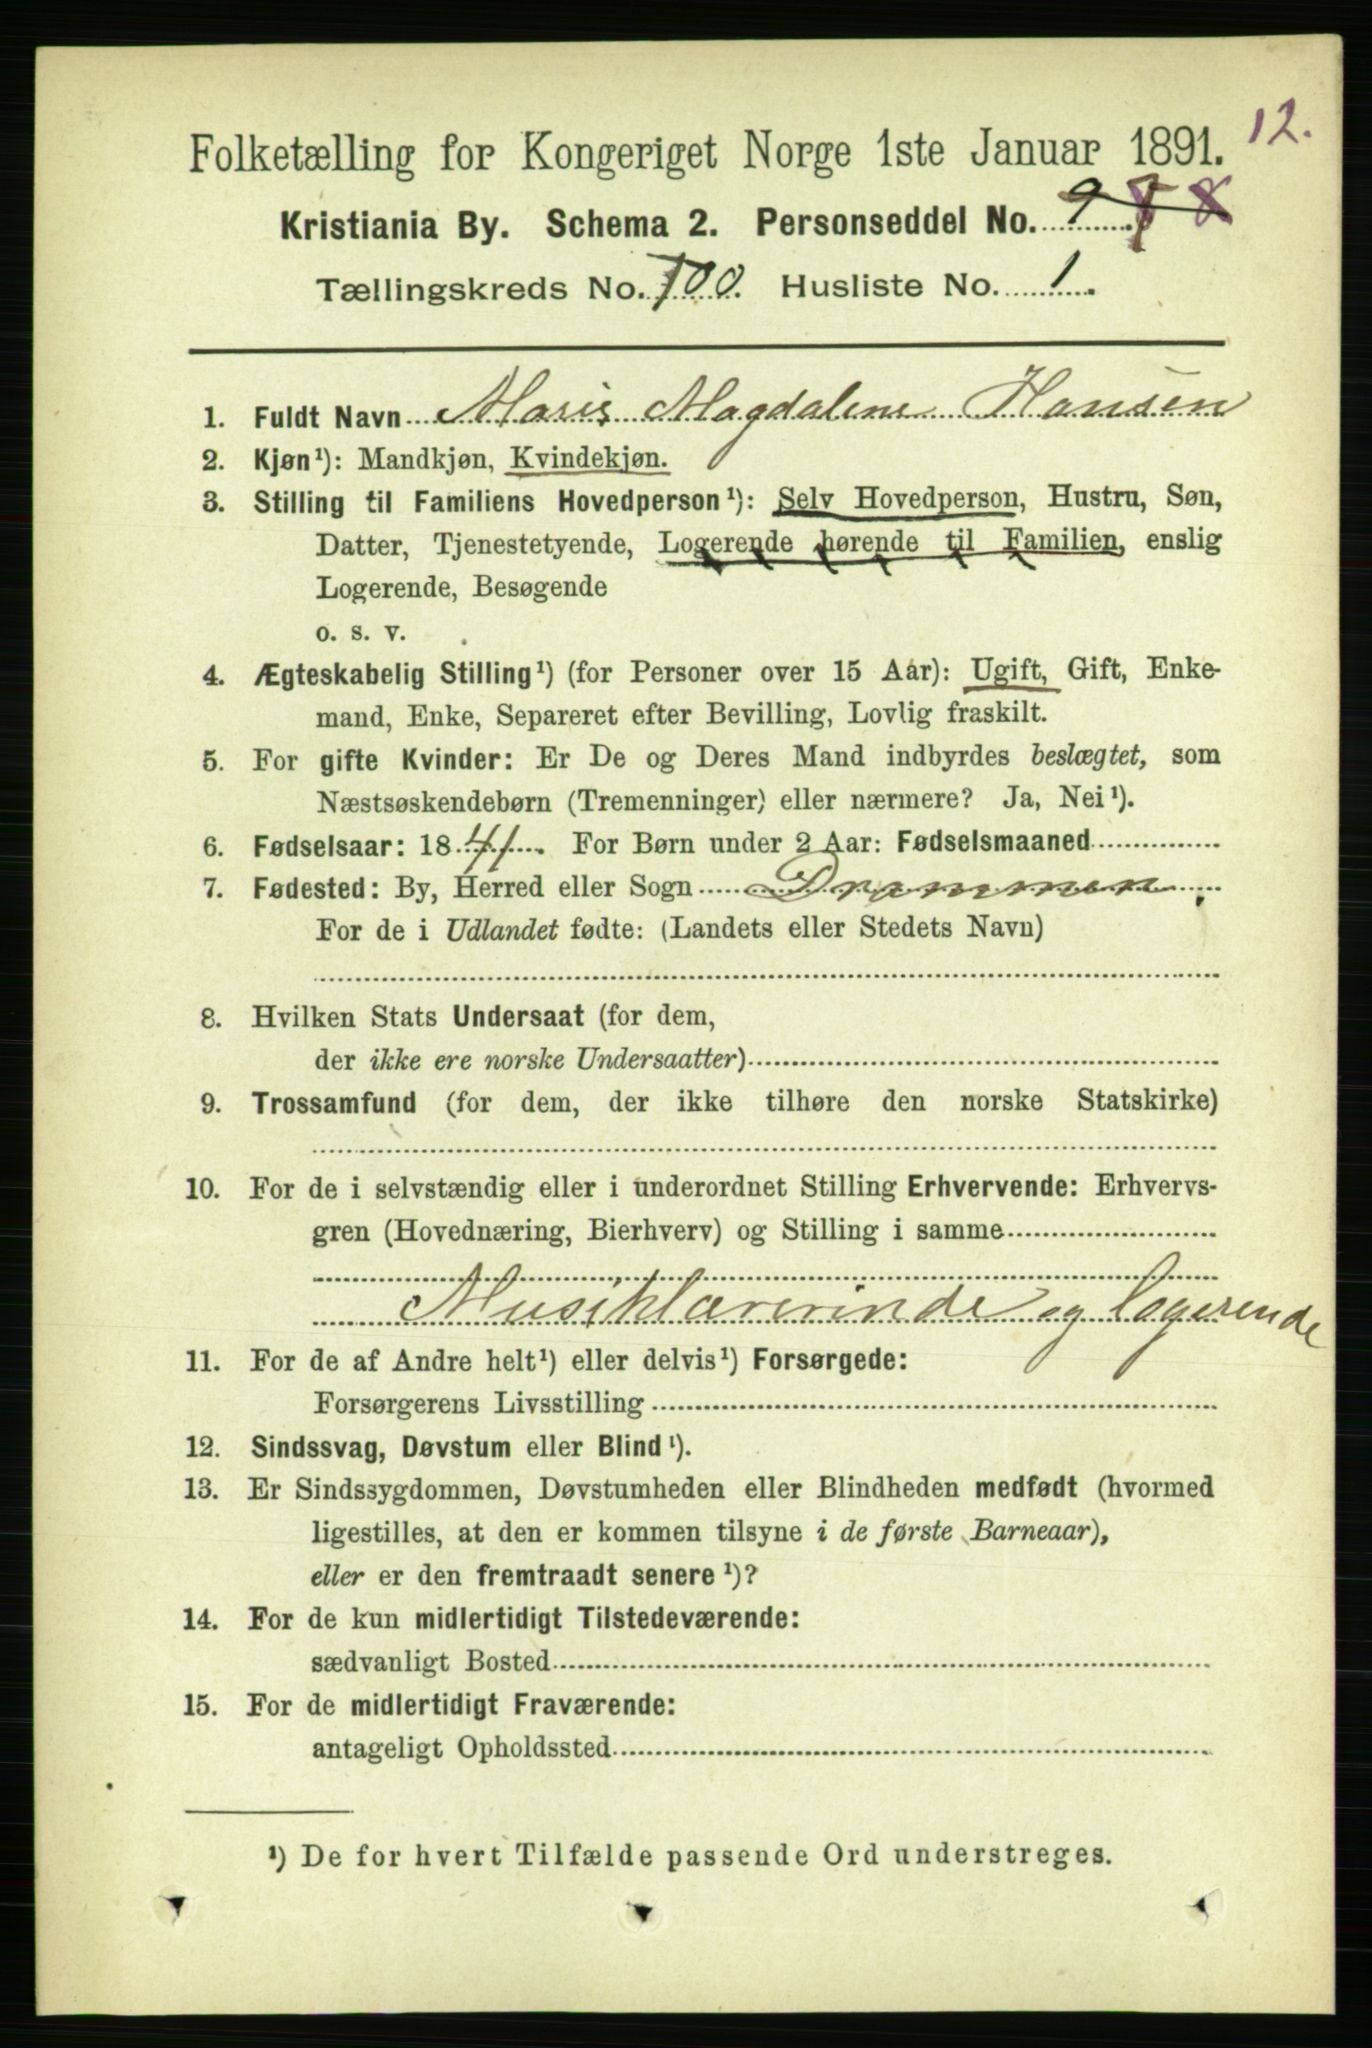 12.
Folketælling for Kongeriget Norge 1ste Januar 1891.
Kristiania By. Schema 2. Personseddel No. 9 8
Tællingskreds No. 100. Husliste No. 1.
1. Fuldt Navn Marie Magdalene Hansen
2. Kjøn¹): Mandkjøn, Kvindekjøn.
3. Stilling til Familiens Hovedperson¹): Selv Hovedperson, Hustru, Søn,
Datter, Tjenestetyende, Logerende hørende til Familien, enslig
Logerende, Besøgende
o. s. v.
4. Ægteskabelig Stilling¹) (for Personer over 15 Aar): Ugift, Gift, Enke-
mand, Enke, Separeret efter Bevilling, Lovlig fraskilt.
5. For gifte Kvinder: Er De og Deres Mand indbyrdes beslægtet, som
Næstsøskendebørn (Tremenninger) eller nærmere? Ja, Nei¹).
6. Fødselsaar: 1841. For Børn under 2 Aar: Fødselsmaaned
7. Fødested: By, Herred eller Sogn Drammen.
For de i Udlandet fødte: (Landets eller Stedets Navn)
8. Hvilken Stats Undersaat (for dem,
der ikke ere norske Undersaatter)
9. Trossamfund (for dem, der ikke tilhøre den norske Statskirke)
10. For de i selvstændig eller i underordnet Stilling Erhvervende: Erhvervs-
gren (Hovednæring, Bierhverv) og Stilling i samme
Musiklærerinde og logerende
11. For de af Andre helt¹) eller delvis¹) Forsørgede:
Forsørgerens Livsstilling
12. Sindssvag, Døvstum eller Blind¹).
13. Er Sindssygdommen, Døvstumheden eller Blindheden medfødt (hvormed
ligestilles, at den er kommen tilsyne i de første Barneaar),
eller er den fremtraadt senere¹)?
14. For de kun midlertidigt Tilstedeværende:
sædvanligt Bosted
15. For de midlertidigt Fraværende:
antageligt Opholdssted
¹) De for hvert Tilfælde passende Ord understreges.